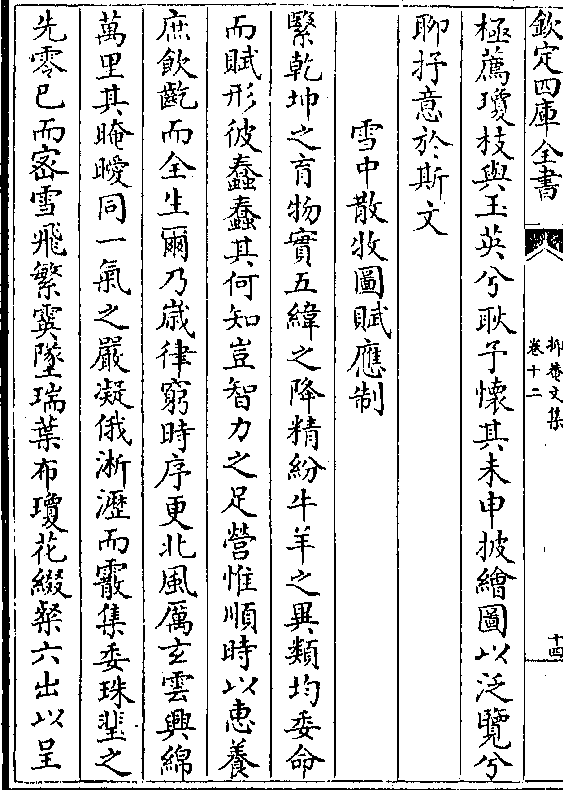 欽定四庫全書
抑菴文集
卷十二
十四
極薦瓊枝與玉英兮耿予懷其未申披繪圖以泛覽兮
聊抒意於斯文
雪中散牧圖賦應制
繄乾坤之育物實五緯之降精紛牛羊之異類均委命
而賦形彼蠢蠢其何知豈智力之足營惟順時以惠養
庶飲齕而全生爾乃歲律窮時序更北風厲玄雲興綿
萬里其晻曖同一氣之嚴凝俄淅瀝而霰集委珠琲之
先零已而密雪飛繁霙墜瑞葉布瓊花綴粲六出以呈